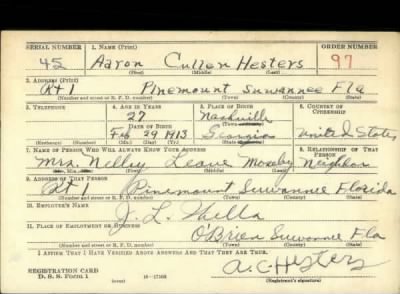 SERIAL NUMBER 1. NAME (Print) ORDER NUMBER
45 Aaron Cullen Hesters 97
(First) (Middle) (Last)
2. ADDRESS (Print)
Rt 1 Pinemount Suwannee Fla
(Number and street or R. F. D. number) (Town) (County) (State)
3. TELEPHONE 4. AGE IN YEARS 5. PLACE OF BIRTH 6. COUNTRY OF CITIZENSHIP
27 Nashville
DATE OF BIRTH (Town or county)
Feb 29 1913 Georgia United States
(Exchange) (Number) (Mo.) (Day) (Yr.) (State or country)
7. NAME OF PERSON WHO WILL ALWAYS KNOW YOUR ADDRESS 8. RELATIONSHIP OF THAT PERSON
Mrs. Moseley Neighbor
(Mr., Mrs., Miss) (First) (Middle) (Last)
9. ADDRESS OF THAT PERSON
Rt 1 Pinemount Suwannee Florida
(Number and street or R. F. D. number) (Town) (County) (State)
10. EMPLOYER'S NAME
J. L.
11. PLACE OF EMPLOYMENT OR BUSINESS
O'Brien Suwannee Fla
(Number and street or R. F. D. number) (Town) (County) (State)
I AFFIRM THAT I HAVE VERIFIED ABOVE ANSWERS AND THAT THEY ARE TRUE.
REGISTRATION CARD
D. S. S. Form 1 16—17105 A. C Hesters
(Registrant's signature)